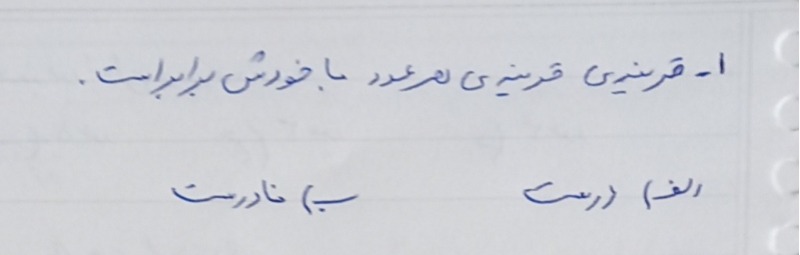 ۱- قرینه‌ی قرینه‌ی هر عدد با خودش برابر است.
الف) درست ب) نادرست